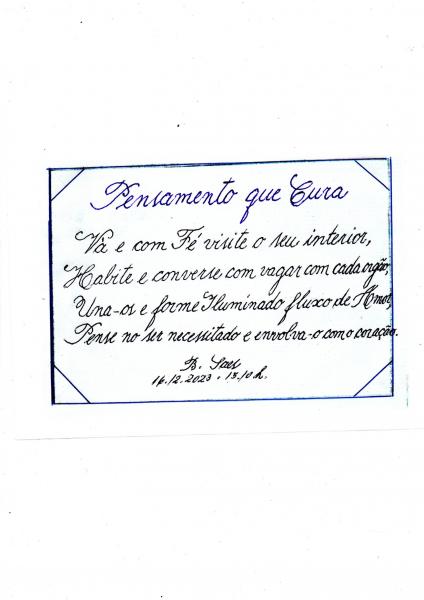 Pensamento que Cura
Vá e com Fé visite o seu interior,
Habite e converse com vagar com cada orgão,
Una-os e forme Iluminado fluxo de Amor,
Pense no ser necessitado e envolva-o com o coração.
B. Saes
16.12.2023 · 15.10 h.